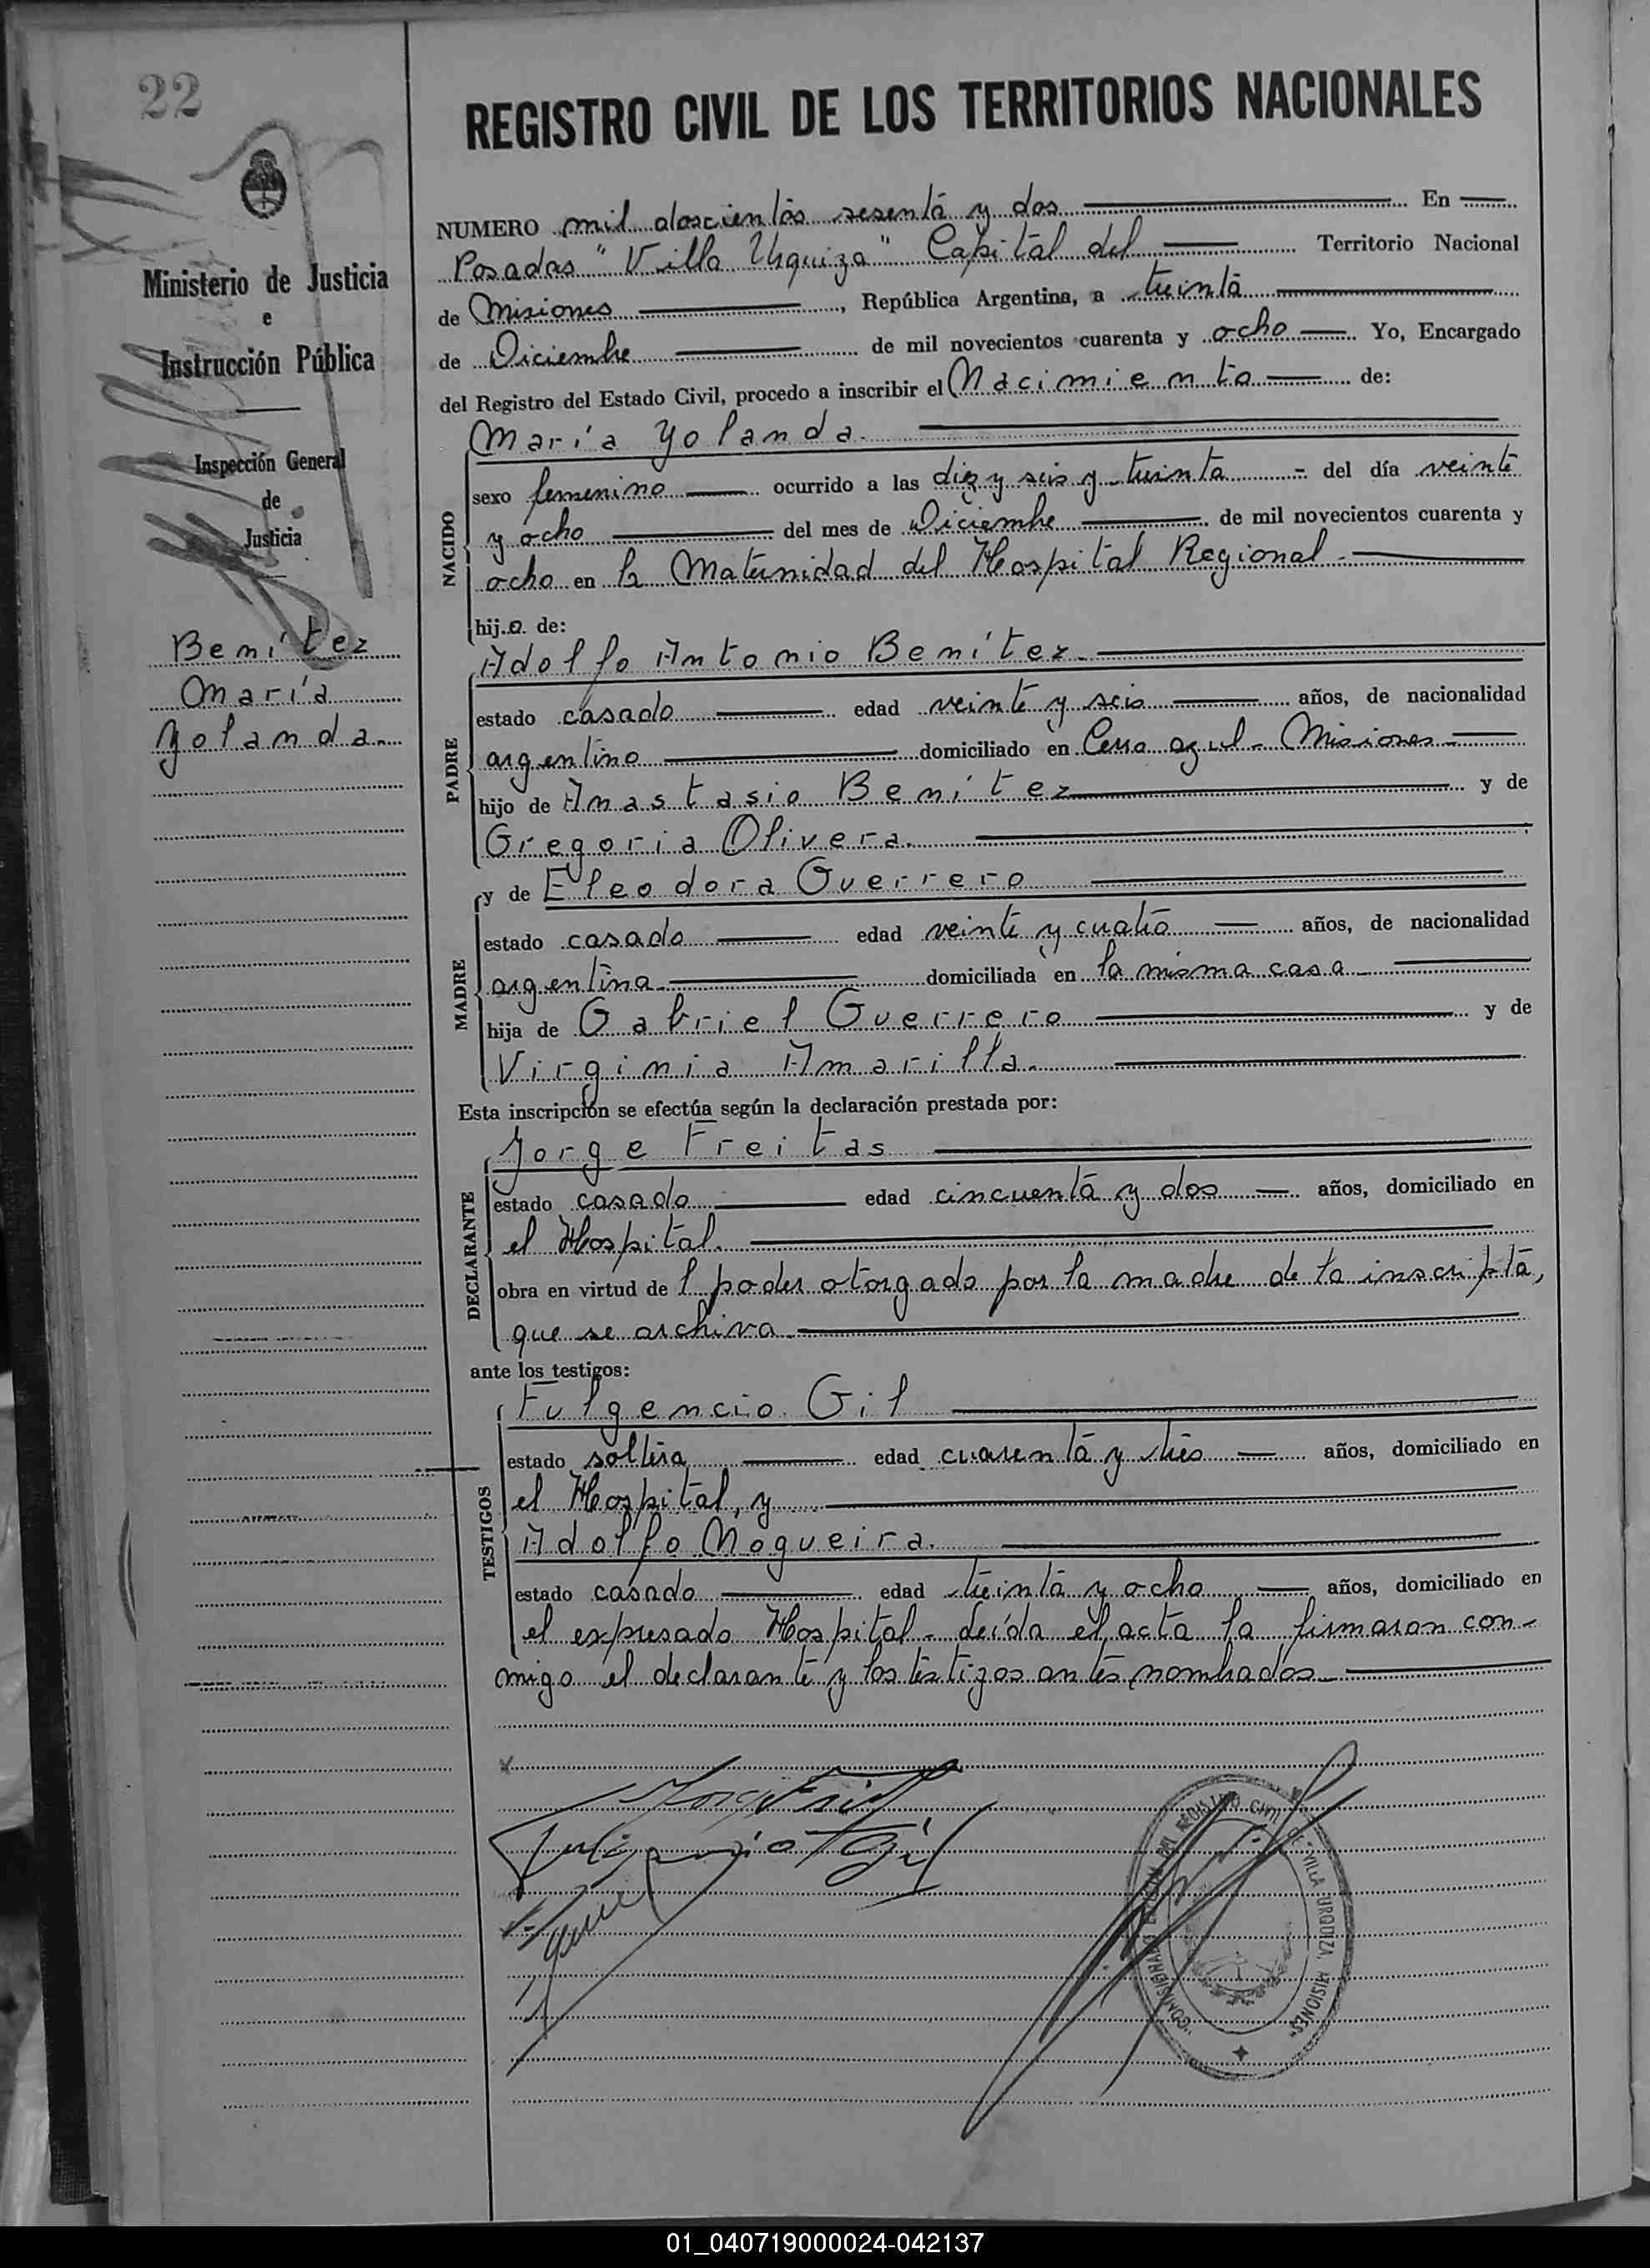 22
REGISTRO CIVIL DE LOS TERRITORIOS NACIONALES
Ministerio de Justicia
e
Instrucción Pública
Inspección General
de
Justicia
Benítez
María
Yolanda.
NUMERO mil doscientos sesenta y dos En
Posadas "Villa Urquiza" Capital del Territorio Nacional
de Misiones, República Argentina, a treinta
de Diciembre de mil novecientos cuarenta y ocho Yo, Encargado
del Registro del Estado Civil, procedo a inscribir el Nacimiento de:
María Yolanda.
NACIDO
sexo femenino ocurrido a las diez y seis y treinta del día veinte
y ocho del mes de Diciembre de mil novecientos cuarenta y
ocho en la Maternidad del Hospital Regional.
hija de:
PADRE
Adolfo Antonio Benítez.
estado casado edad veinte y seis años, de nacionalidad
argentino domiciliado en Cerro azul - Misiones
hijo de Anastasio Benítez y de
Gregoria Olivera.
MADRE
y de Eleodora Guerrero
estado casado edad veinte y cuatro años, de nacionalidad
argentina domiciliada en la misma casa
hija de Gabriel Guerrero y de
Virginia Amarilla.
Esta inscripción se efectúa según la declaración prestada por:
DECLARANTE
Jorge Freitas
estado casado edad cincuenta y dos años, domiciliado en
el Hospital.
obra en virtud del poder otorgado por la madre de la inscripta,
que se archiva
ante los testigos:
TESTIGOS
Fulgencio Gil
estado soltera edad cuarenta y tres años, domiciliado en
el Hospital, y
Adolfo Nogueira.
estado casado edad treinta y ocho años, domiciliado en
el expresado Hospital - Leída el acta la firmaron con-
migo el declarante y los testigos antes nombrados
Fulgencio Gil
REGISTRO CIVIL DE VILLA URQUIZA MISIONES
01_040719000024-042137